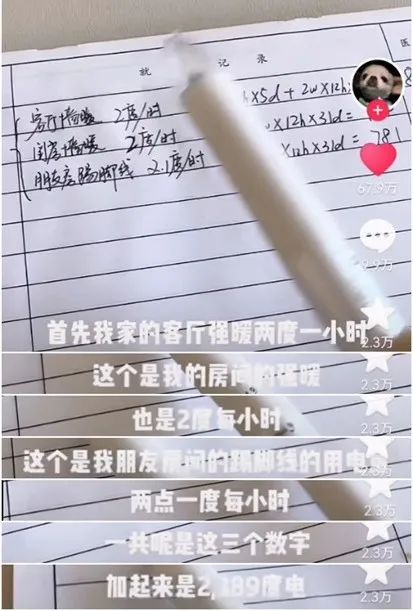 就 记录 医
客厅墙暖 2度/时 ×5d + 2w×12h
闺房墙暖 2度/时 ×12h×31d =
朋友房踢脚线 2.1度/时 ×12h×31d = 781
67.9万
9.9万
首先我家的客厅强暖两度一小时
2.3万
这个是我的房间的强暖
2.3万
也是2度每小时
2.3万
这个是我朋友房间的踢脚线的用电
2.3万
两点一度每小时
2.3万
一共呢是这三个数字
2.3万
加起来是2,189度电
2.3万